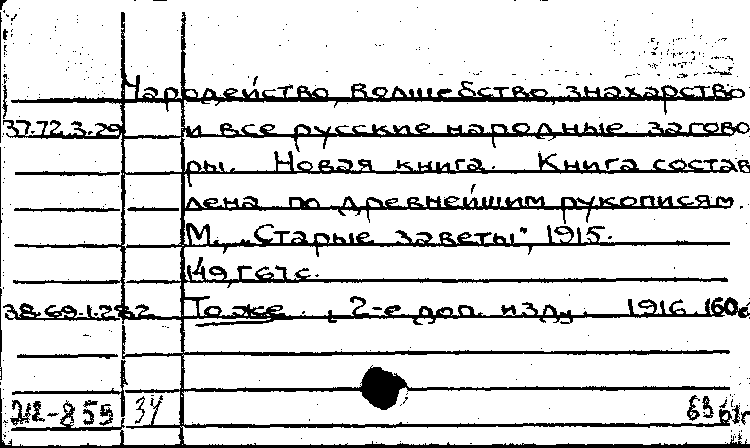 Чародейство, волшебство, знахарство
37.72.3.29 и все русские народные загово
ры. Новая книга. Книга состав
лена по древнейшим рукописям.
М., „Старые заветы", 1915.
149, [6] с.
38.69.1.282 То же. [2-е доп. изд]. 1916. 160с
212-859 34